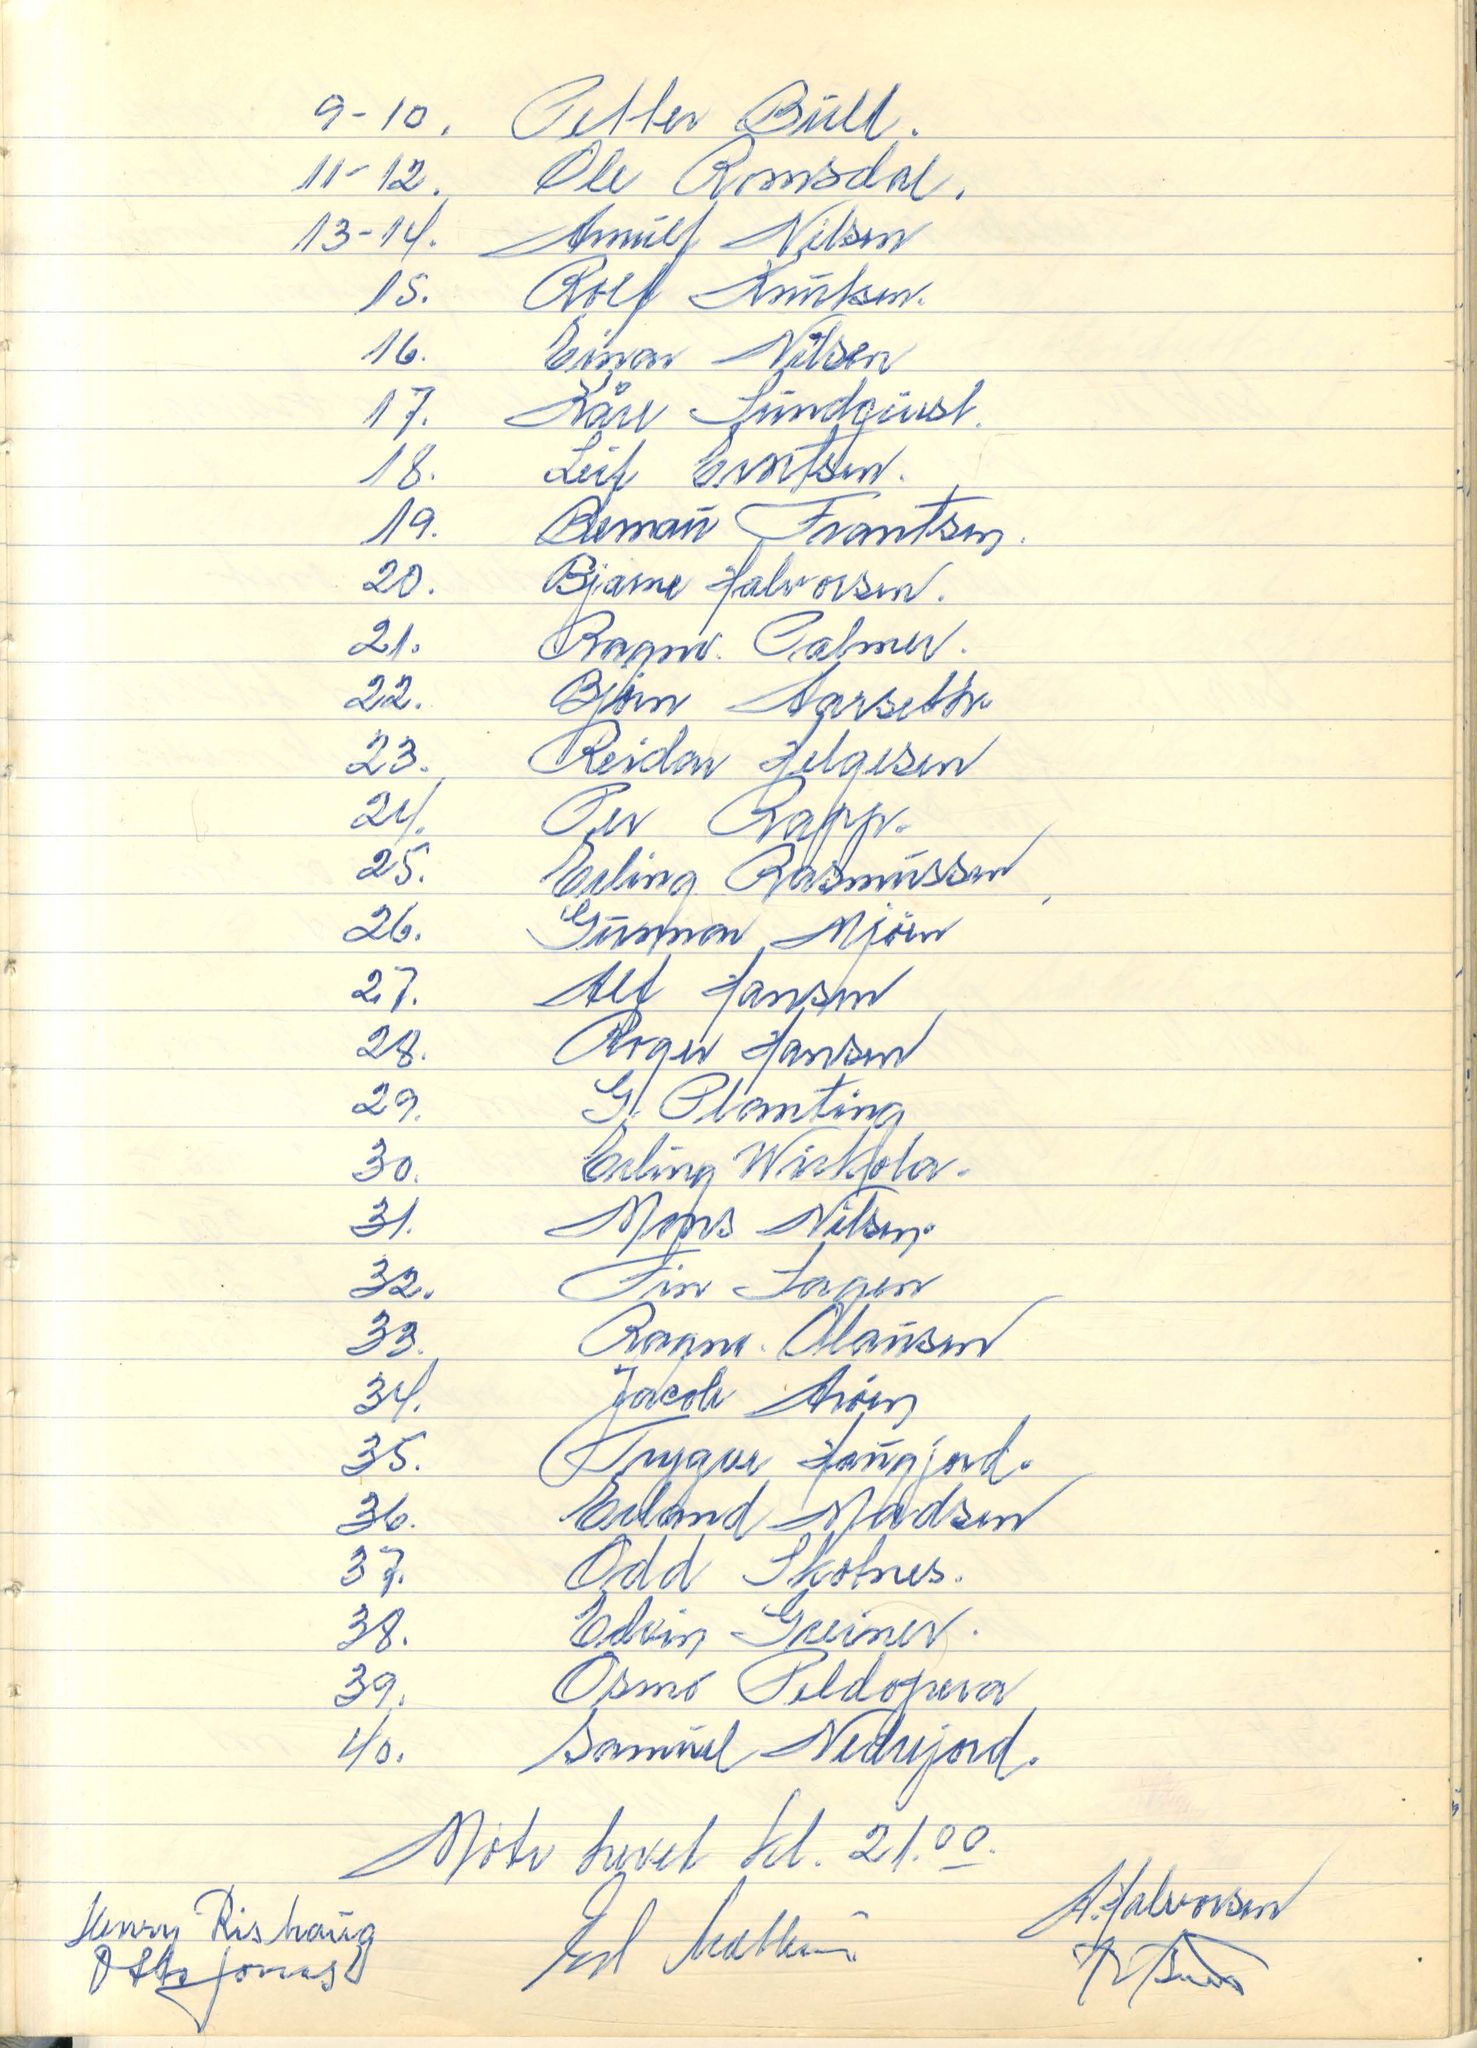 9-10. Petter Bull.
11-12. Ole Romsdal.
13-14. Arnulf Nilsen
15. Rolf Knutsen.
16. Einar Nilsen
17. Kåre Lundquist.
18. Leif Evertsen.
19. Frantsen.
20. Bjarne Halvorsen.
21. Ragnv. Palmer.
22. Bjørn Aarseth.
23. Reidar Helgesen
24. Per Rapp.
25. Erling Rasmussen
26. Gunnar Mjøen
27. Alf Hansen
28. Roger Hansen
29. G. Planting
30. Erling
31. Mons Nilsen.
32. Fin Hagen
33. Ragnv. Olaussen
34. Jacob Arøen
35. Trygve Haugjord.
36. Erland Madsen
37. Odd Skolnes.
38. Edvin Greiner.
39. Osmo Peldoperä
40. Samuel Nedrejord.
Møte hevet kl. 21.00.
Henry Rishaug
A. Halvorsen
Otto Jonas